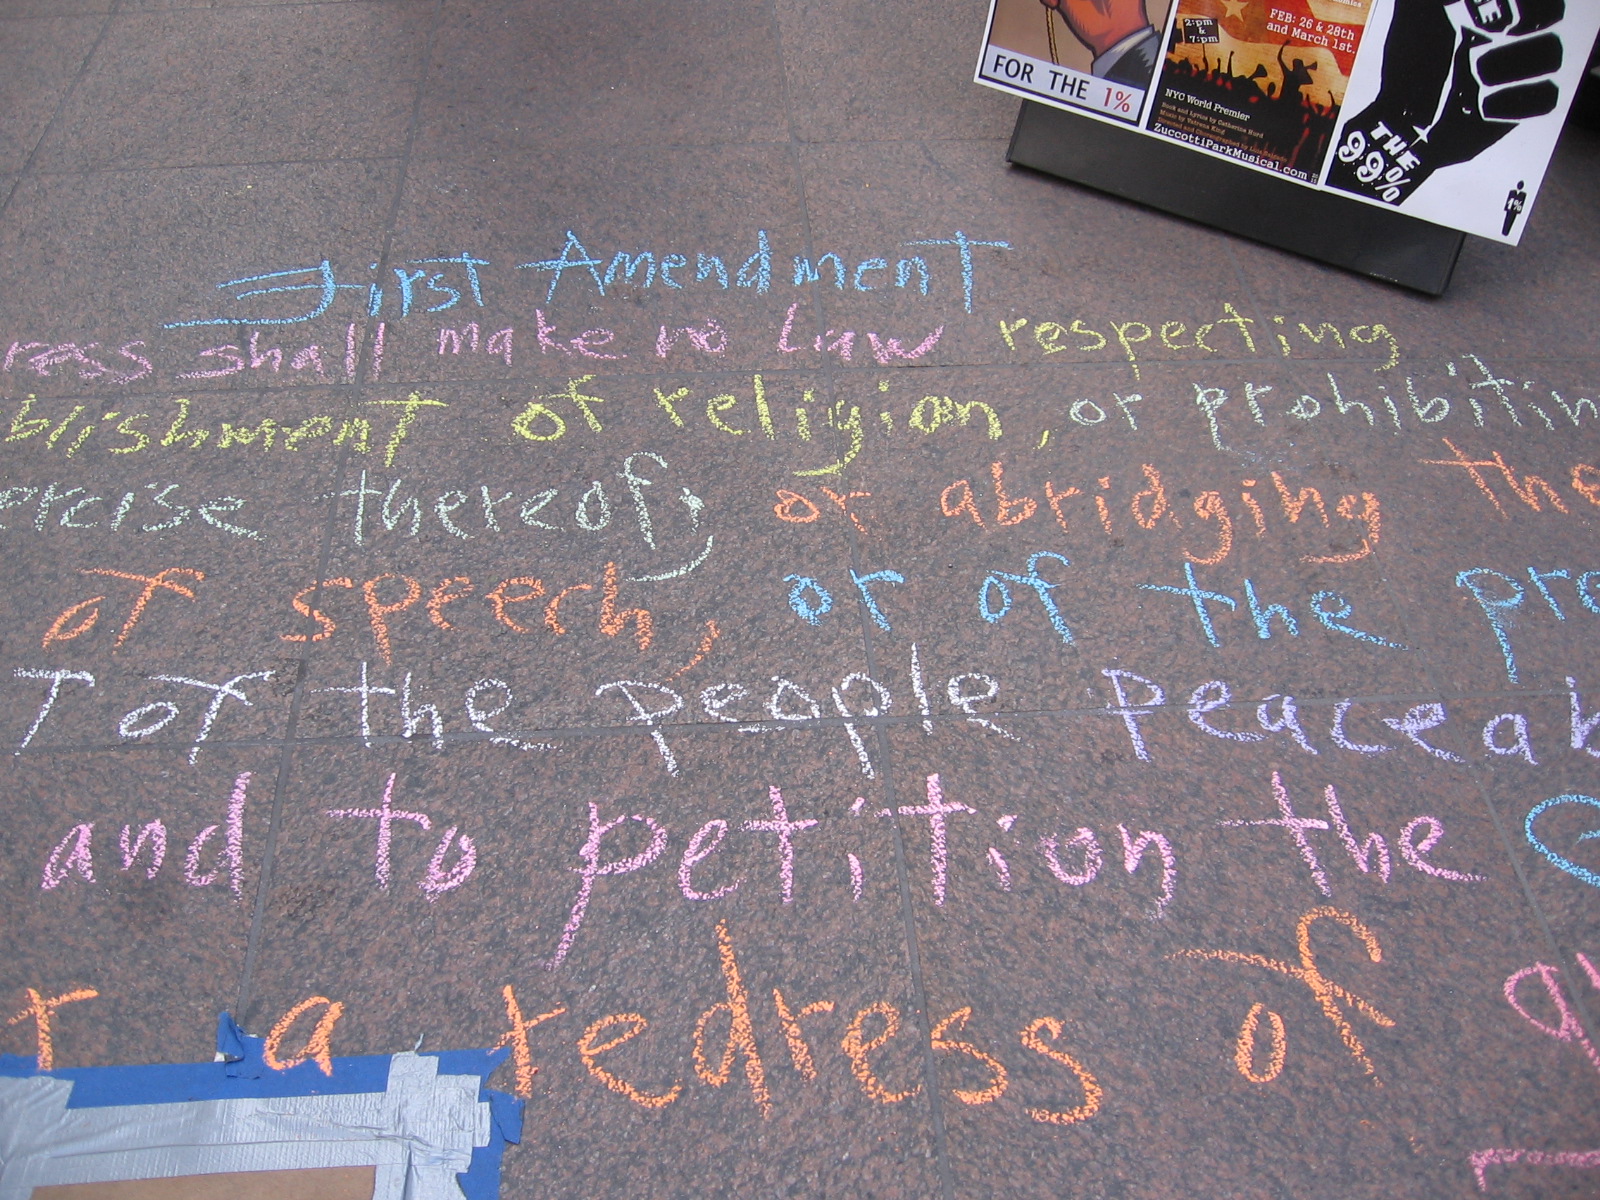 FOR THE 1%
2:pm
&
7:pm
FEB: 26 & 28th
and March 1st.
NYC World Premier
Book and Lyrics by Catherine Hurd
ZuccottiParkMusical.com
THE
99%
1%
First Amendment
ress shall make no Law respecting
blishment of religion, or prohibitin
ercise thereof; or abridging the
of speech, or of the pre
T of the people peaceab
and to petition the G
r a redress of g